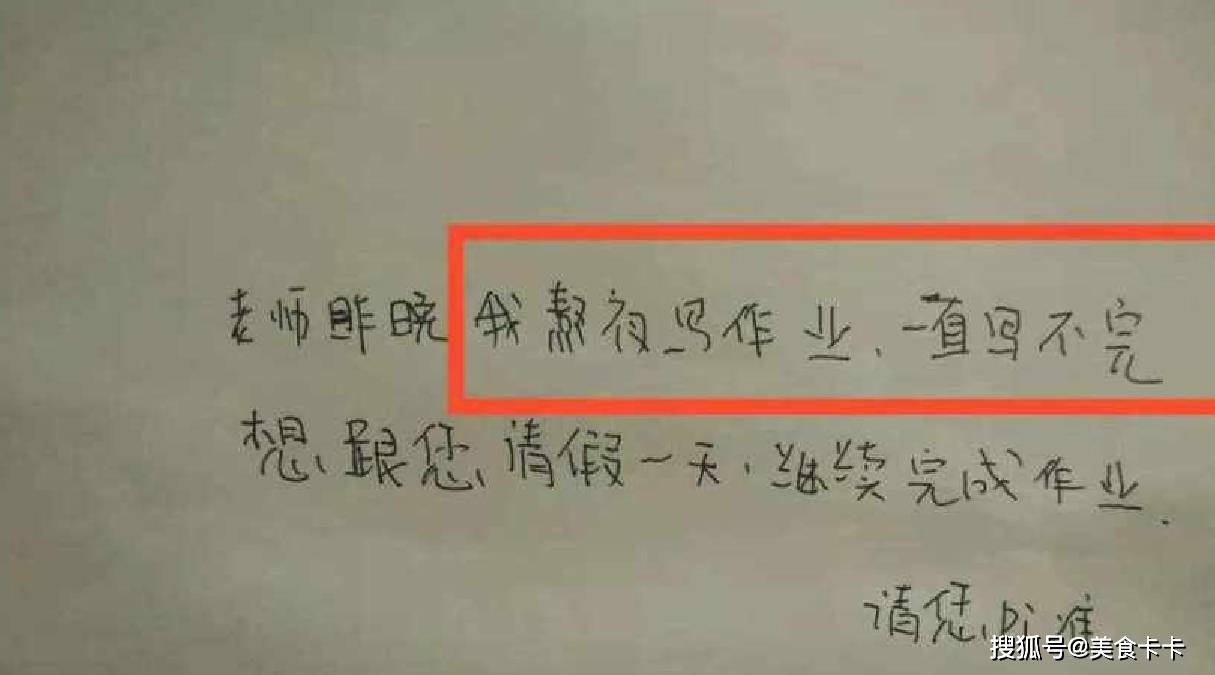 老师昨晚我熬夜写作业、一直写不完
想跟您请假一天、继续完成作业.
请您pi准
搜狐号@美食卡卡